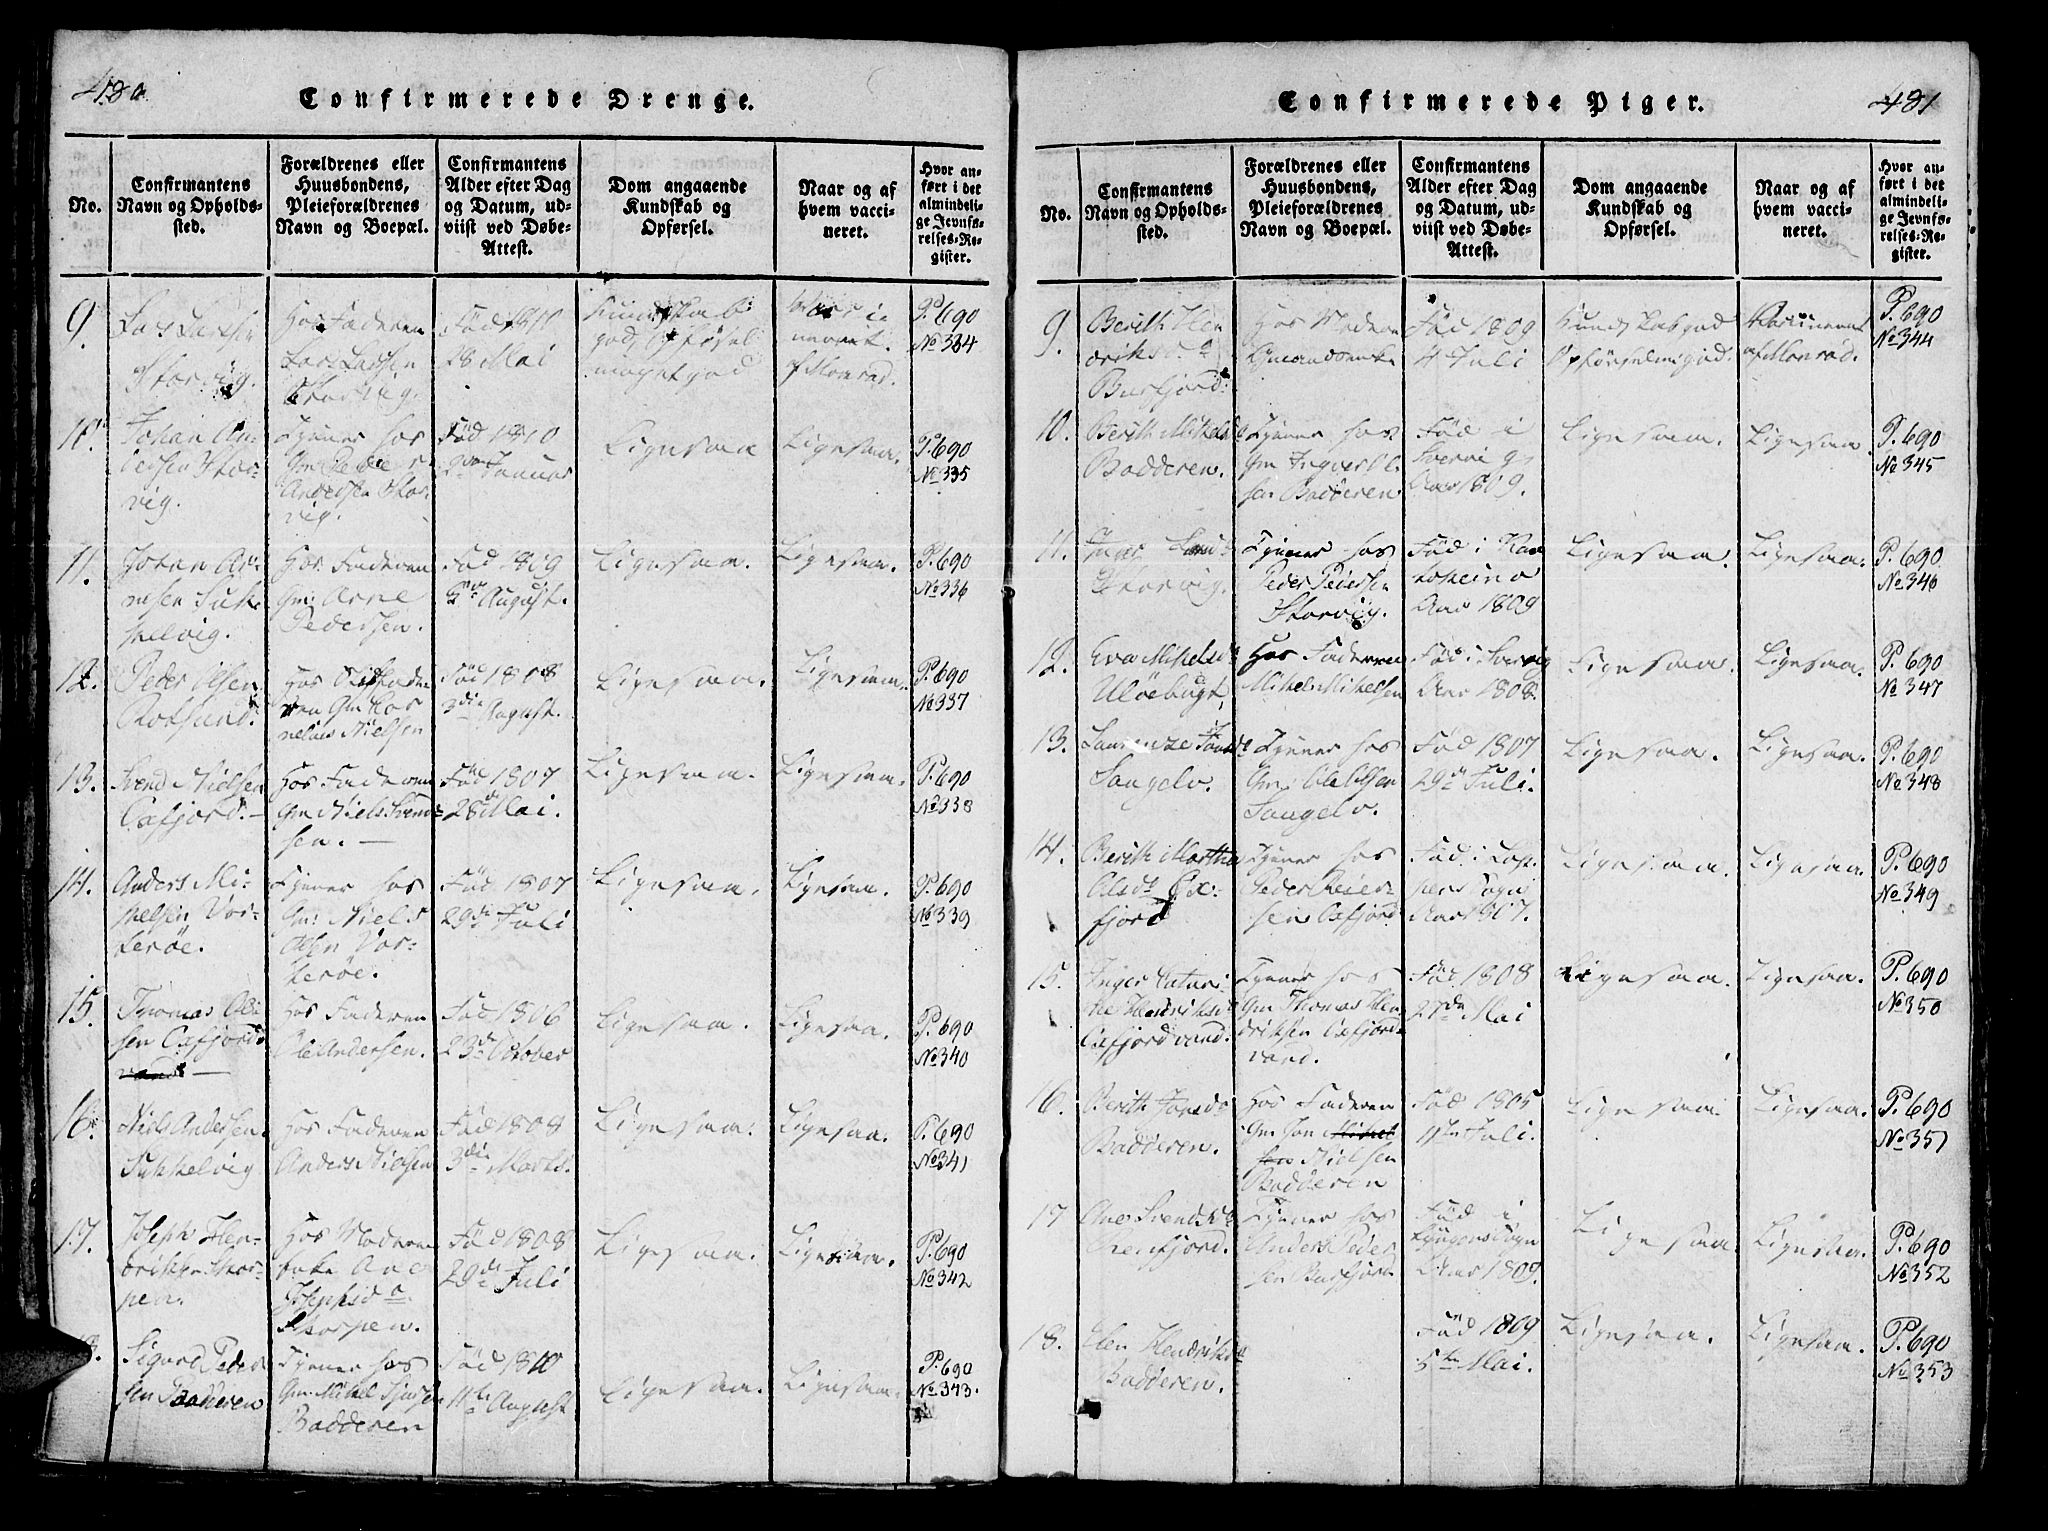 480
Confirmerede Drenge.
No.
Confirmantens
Navn og Opholds-
sted.
Forældrenes eller
Huusbondens,
Pleieforældrenes
Navn og Boepæl.
Confirmantens
Alder efter Dag
og Datum, ud-
viist ved Døbe-
Attest.
Dom angaaende
Kundskab og
Opførsel.
Naar og af
hvem vacci-
neret.
Hvor an-
ført i det
almindeli-
ge Jevnfø-
relses-Re-
gister.
9.
Lars Larsen
Storvig.
Hos Faderen
Lars Larsen
Storvig.
Fød 1810
28 Mai
Kundskab
god, Opførsel
meget god
Vacci
neret
af Monrad.
P. 690
No 334
10.
Johan An-
dersen Stor-
vig.
Tjener hos
Gm Peder
Andersen Stor-
vig.
Fød 1810
2den Januar
Ligesaa
Ligesaa.
P. 690
No 335
11.
Johan Ar-
nesen Suk-
kelvig.
Hos Faderen
Gm: Arne
Pedersen.
Fød 1809
August.
Ligesaa.
Ligesaa.
P. 690
No 336
12.
Peder Olsen
Rotsund.
Hos Stiffade
ren Gm Kor
nelius Nielsen
Fød 1808
3die August.
Ligesaa.
Ligesaa.
P. 690
No 337
13.
Svend Nielsen
Oxfjord. —
Hos Faderen
Gm Niels Svend-
sen. —
Fød 1807
28de Mai.
Ligesaa.
Ligesaa.
P. 690
No 338
14.
Anders Mi-
kelsen Vor-
terøe.
Tjener hos
Gm: Niels
Olsen Vor-
terøe.
Fød. 1807
29de Juli
Ligesaa.
Ligesaa.
P. 690
No 339
15.
Thomas Ole
sen Oxfjord
vand —
Hos Faderen
Ole Andersen.
Fød 1806
23de October
Ligesaa.
Ligesaa.
P. 690
No 340
16.
Niels Andersen
Sukkelvig
Hos Faderen
Anders Nielsen
Fød 1808
3die Marts.
Ligesaa.
Ligesaa.
P. 690
No 341
17.
Joseph Hen-
driksen Skor-
pen.
Hos Moderen
Enke Ane
Josephsd a.
Skorpen.
Fød 1808
29de Juli
Ligesaa.
Ligesaa.
P. 690
No 342
18.
Sigurd Peder
sen Badderen
Tjener hos
Gm: Mikel
Badderen
Fød 1810
11te August
Ligesaa.
Ligesaa.
P. 690
No 343.
Confirmerede Piger.
481
No.
Confirmantens
Navn og Opholds-
sted.
Forældrenes eller
Huusbondens,
Pleieforældrenes
Navn og Boepæl.
Confirmantens
Alder efter Dag
og Datum, ud-
viist ved Døbe-
Attest.
Dom angaaende
Kundskab og
Opførsel.
Naar og af
hvem vacci-
neret.
Hvor an-
ført i det
almindeli-
ge Jevnfø-
relses-Re-
gister.
9.
Berith Hen
driksd a
Burfjord.
Hos Moderen
Gmandsenke
Fød 1809
4 Juli
Kundskab god
Opførsel m: god.
Vaccineret
af Monrad.
P. 690
No 344
10.
Berith Mikels
Badderen.
Tjener hos
Gm Ingver Ol
sen Badderen
Fød i
Sverrig
Aar 1809.
Ligesaa.
Ligesaa
P. 690
No 345
11.
Storvig.
Tjener hos
Peder Pedersen
Storvig.
Fød i Kau
tokeino
Aar 1809
Ligesaa.
Ligesaa.
P. 690
No 346
12.
Eva Mikelsd
Uløebugt,
Hos Faderen
Mikel Mikelsen
Fød i Sverrig
Aar 1808.
Ligesaa.
Ligesaa.
P. 690
No 347
13.
Laurenze
Sangelv.
Tjener hos
Gm: Ole Olsen
Sangelv.
Fød 1807
29de Juli.
Ligesaa.
Ligesaa.
P. 690
No 348
14.
Berith Martha
Olsd Ox-
fjord
Tjener hos
Peder Reier-
sen Oxfjord
Fød. i Lop-
pens Sogn
Aar 1807.
Ligesaa.
Ligesaa.
P. 690
No 349
15.
Inger Catari
ne Hendriksd
Oxfjordvand.
Tjener hos
Gm Thomas Hen
driksen Oxfjord-
vand.
Fød 1808
27de Mai
Ligesaa.
Ligesaa.
P. 690
No 350
16.
Berith Jonsd
Badderen.
Hos Faderen
Gm Jon Mikel
sen Nielsen
Badderen
Fød 1805
11te Juli.
Ligesaa.
Ligesaa.
P. 690
No 351
17
Ane Svendsd
fjord.
Tjener hos
Anders Peder
sen Burfjord.
Fød i
Lyngens Sogn
Aar 1809.
Ligesaa.
Ligesaa.
P. 690
No 352
18.
Elen Hendriksd
Badderen.
Fød 1809
5te Mai.
Ligesaa.
Ligesaa.
P. 690
No 353